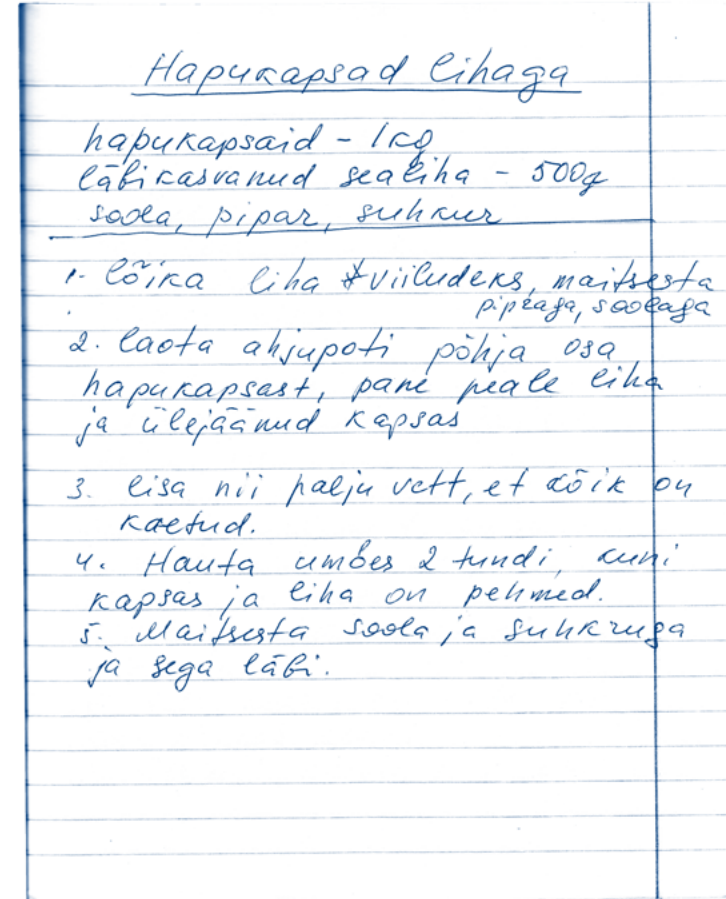 Hapukapsad lihaga
hapukapsaid - 1kg
läbikasvanud sealiha - 500g
soola, pipar, suhkur
1. lõika liha viiludeks, maitsesta
pipraga, soolaga
2. laota ahjupoti põhja osa
hapukapsast, pane peale liha
ja ülejäänud kapsas
3. lisa nii palju vett, et kõik on
kaetud.
4. Hauta umbes 2 tundi, kuni
kapsas ja liha on pehmed.
5. Maitsesta soola ja suhkruga
ja sega läbi.